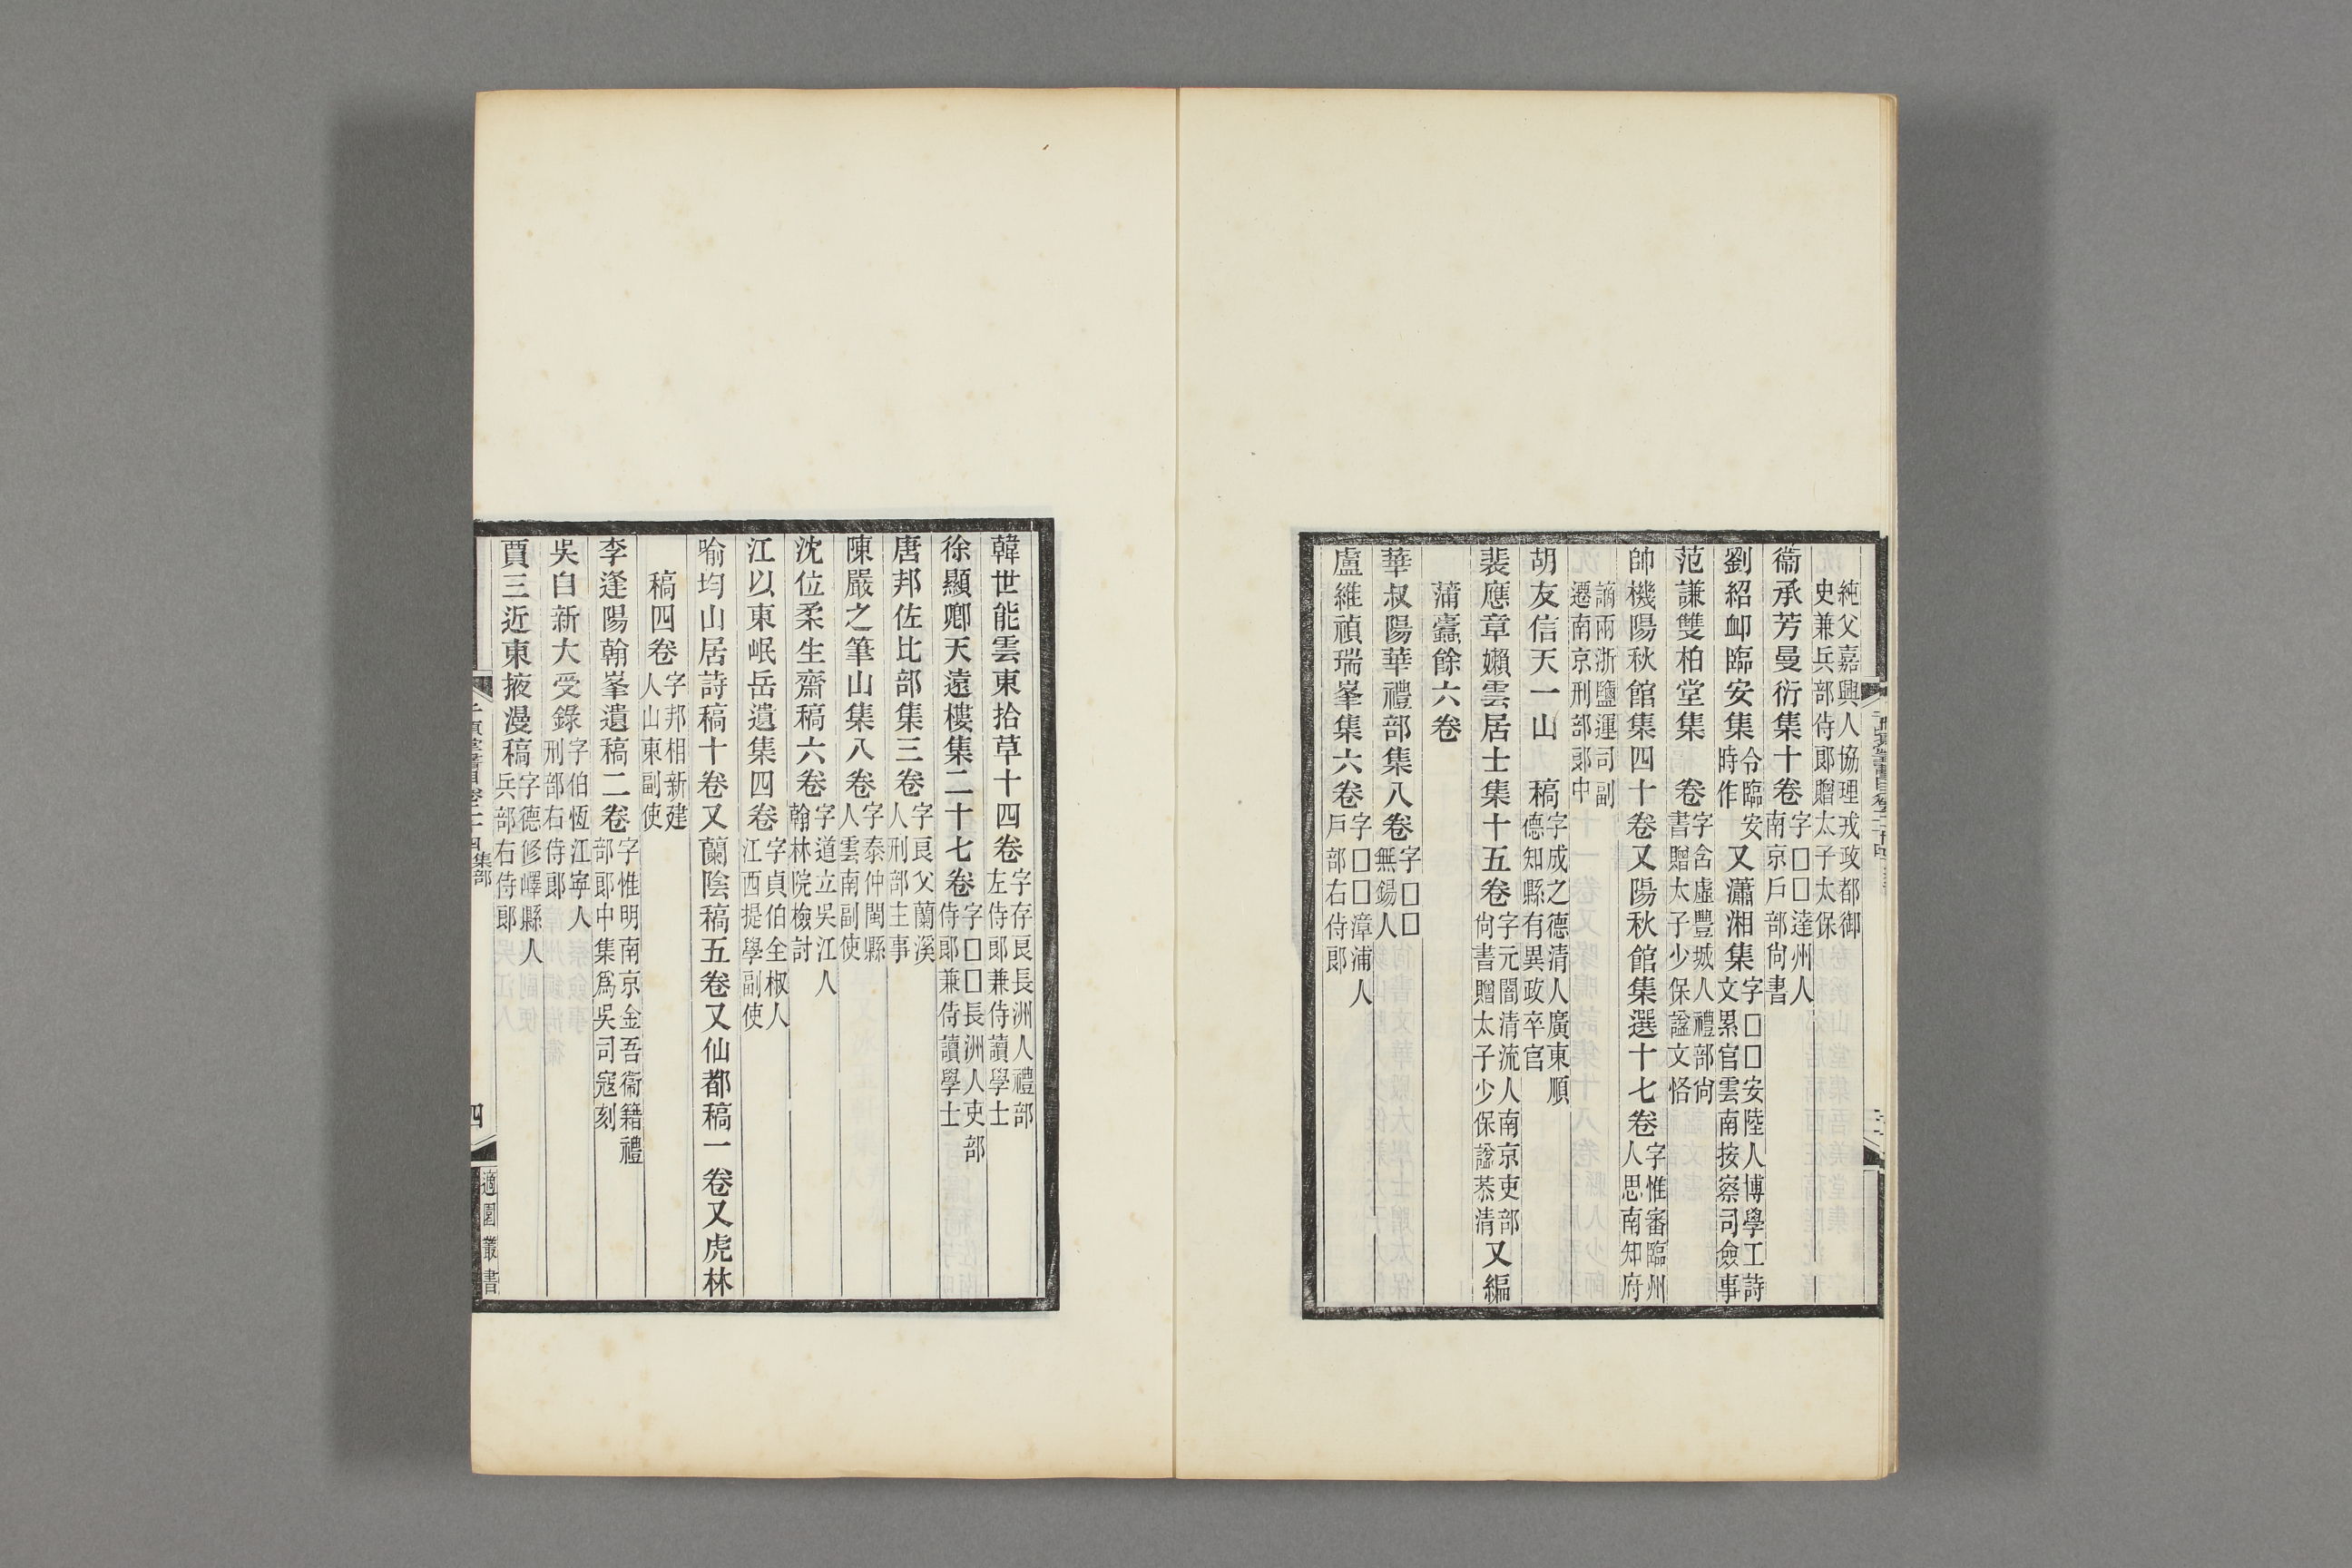 純父嘉興人協理戎政都御
史兼兵部侍郞贈太子太保
衞承芳曼衍集十卷字□□達州人南京戶部尙書
劉紹卹臨安集令臨安時作又瀟湘集字□□安陸人博學工詩文累官雲南按察司僉事
范謙雙柏堂集　卷字含虛豐城人禮部尙書贈太子少保諡文恪
帥機陽秋館集四十卷又陽秋館集選十七卷字惟審臨州人思南知府
謫兩浙鹽運司副
遷南京刑部郞中
胡友信天一山　稿字成之德清人廣東順德知縣有異政卒官
裴應章嬾雲居士集十五卷字元闇清流人南京吏部尙書贈太子少保諡恭清又編
蒲蠹餘六卷
華叔陽華禮部集八卷字□□無錫人
盧維禎瑞峯集六卷字□□漳浦人戶部右侍郞
韓世能雲東拾草十四卷字存良長洲人禮部左侍郞兼侍讀學士
徐顯卿天遠樓集二十七卷字□□長洲人吏部侍郞兼侍讀學士
唐邦佐比部集三卷字良父蘭溪人刑部主事
陳嚴之筆山集八卷字泰仲閩縣人雲南副使
沈位柔生齋稿六卷字道立吳江人翰林院檢討
江以東岷岳遺集四卷字貞伯全椒人江西提學副使
喻均山居詩稿十卷又蘭陰稿五卷又仙都稿一卷又虎林
稿四卷字邦相新建人山東副使
李逢陽翰峯遺稿二卷字惟明南京金吾衞籍禮部郞中集爲吳司寇刻
吳自新大受錄字伯恆江寧人刑部右侍郞
賈三近東掖漫稿字德修嶧縣人兵部右侍郞
集部
四
適園叢書